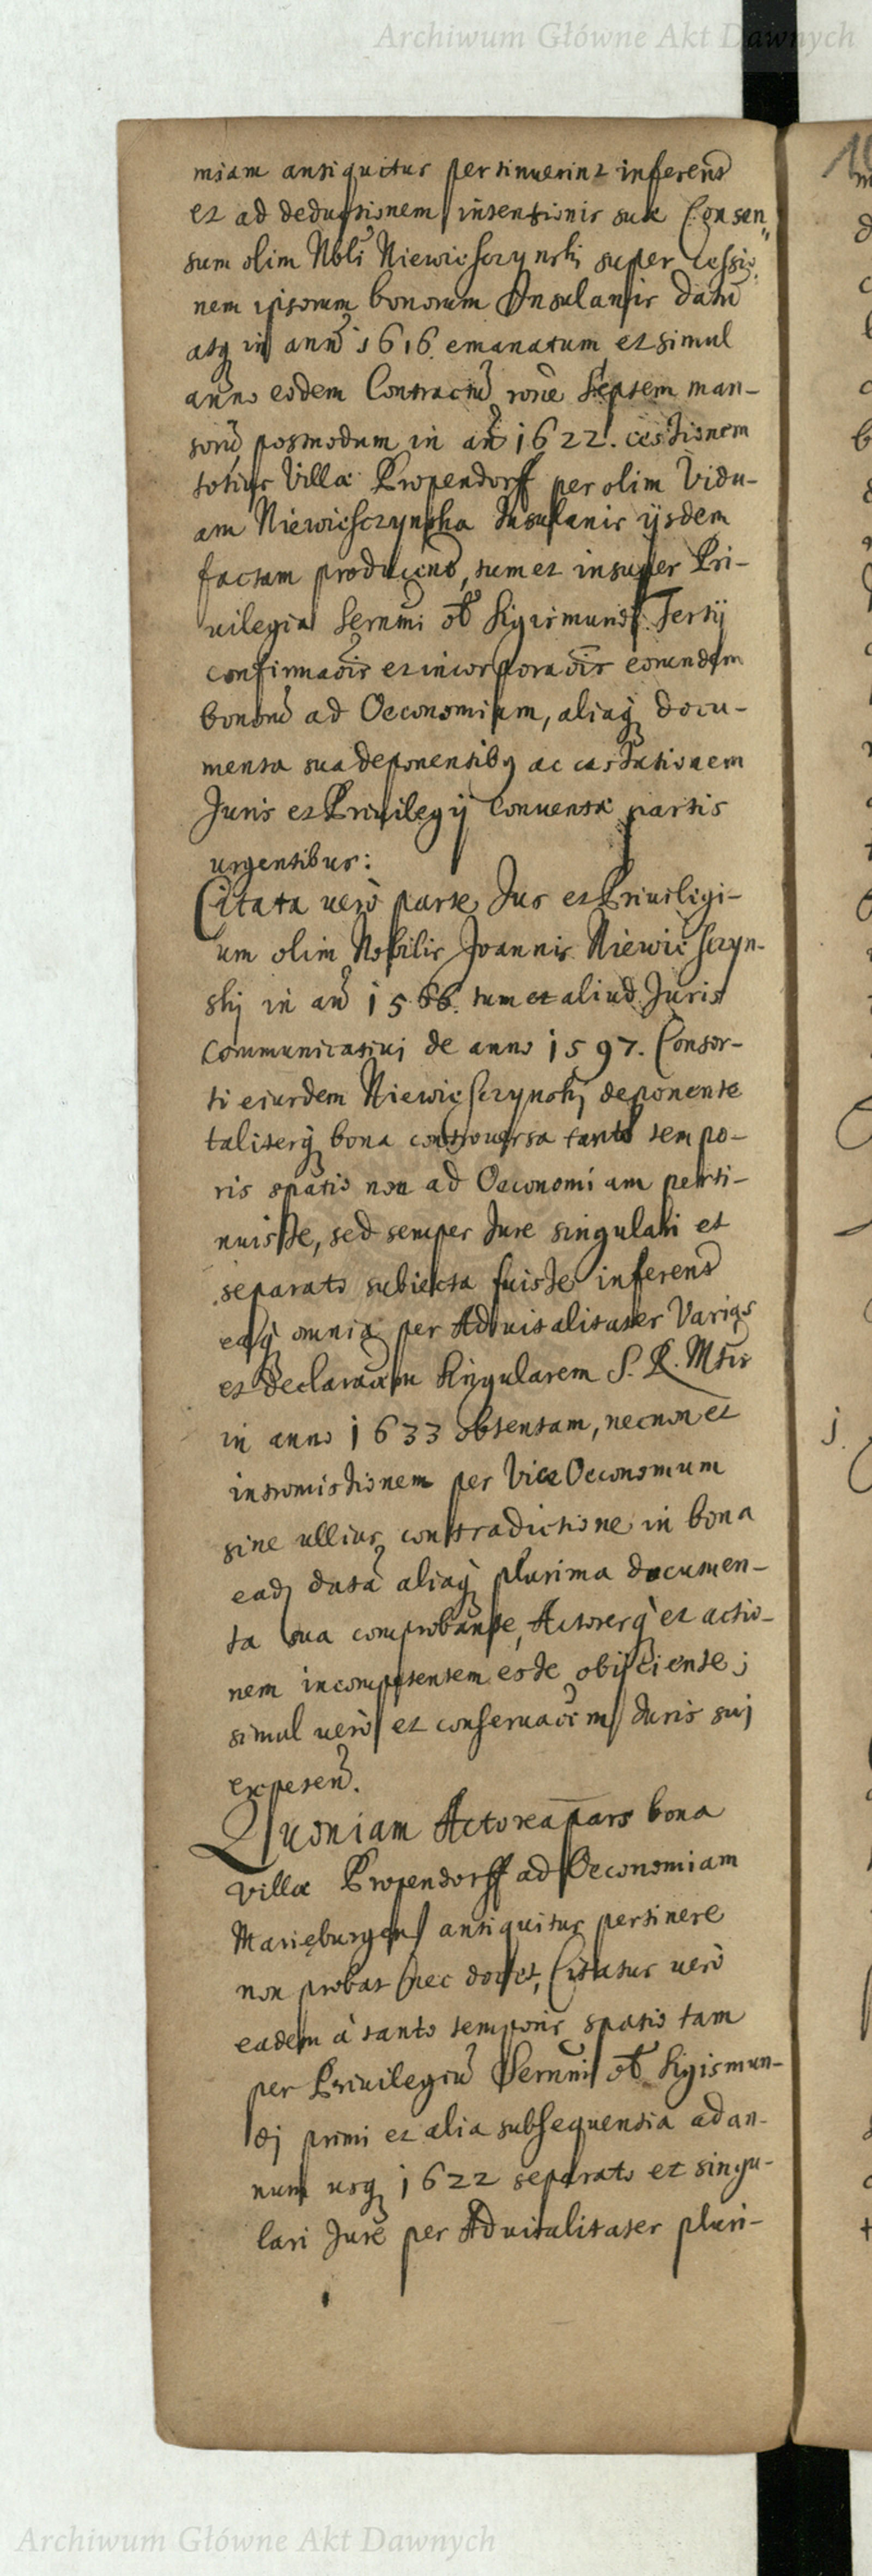 Archiwum Główne Akt Dawnych
miam antiquitus pertinuerint inferen̄
et ad deductionem intentionis suæ Consen„
sum olim Nbli Niewiesczynskj super cessio
nem ipsorum bonorum Insulanis datū
atq in annō 1616 emanatum et simul
anno eodem Contractū rōne Septem man-
sorū posmodum in añ 1622. cessionem
totius Villæ Propendorff per olim Vidu-
am Niewiesczynska Insulanis ijsdem
factam producend, tum et insuper Pri-
uilegia Serñmi ol̄ Sigismundi Tertij
confirmaõis et incorporaõis eorundem
bonorū ad Oeconomiam, aliaq docu-
menta sua deponentibq ac cassationem
Juris et Priuilegij Conuentæ partis
urgentibus:
Citata uerò parte Jus et Priuilegi-
um olim Nobilis Joannis Niewiesczyn-
skj in añ 1566. tum et aliud Juris
Communicatiuj de anno 1597. Consor-
ti eiusdem Niewiesczynskj deponente
taliterq bona controuersa tanto tempo-
ris spatio non ad Oeconomiam perti-
nuisse, sed semper Jure singulari et
separato subiecta fuisse inferend
eaq omnia per Aduitalitates Varias
et declaraõem singularem S. R. Mtis
in anno 1633 obtentam, necnon et
intromissionem per Vice Oeconomum
sine ullius contradictione in bona
eadj datā aliaq plurima documen-
ta sua comprobante, Actoresq et actio-
nem incompetentem esse obijciente;
simul uerò et conseruaõem Juris suj
expeten̄.
Quoniam Actorea pars bona
Villæ Propendorff ad Oeconomiam
Marięburgen antiquitus pertinere
non probat nec docet, Citatus uerò
eadem à tanto temporis spatio tam
per Priuilegiū Serñmi ol̄ Sigismun-
dj primi et alia subsequentia ad an-
num usq 1622 separato et singu-
lari Jure per Aduitalitates pluri-
Archiwum Główne Akt Dawnych